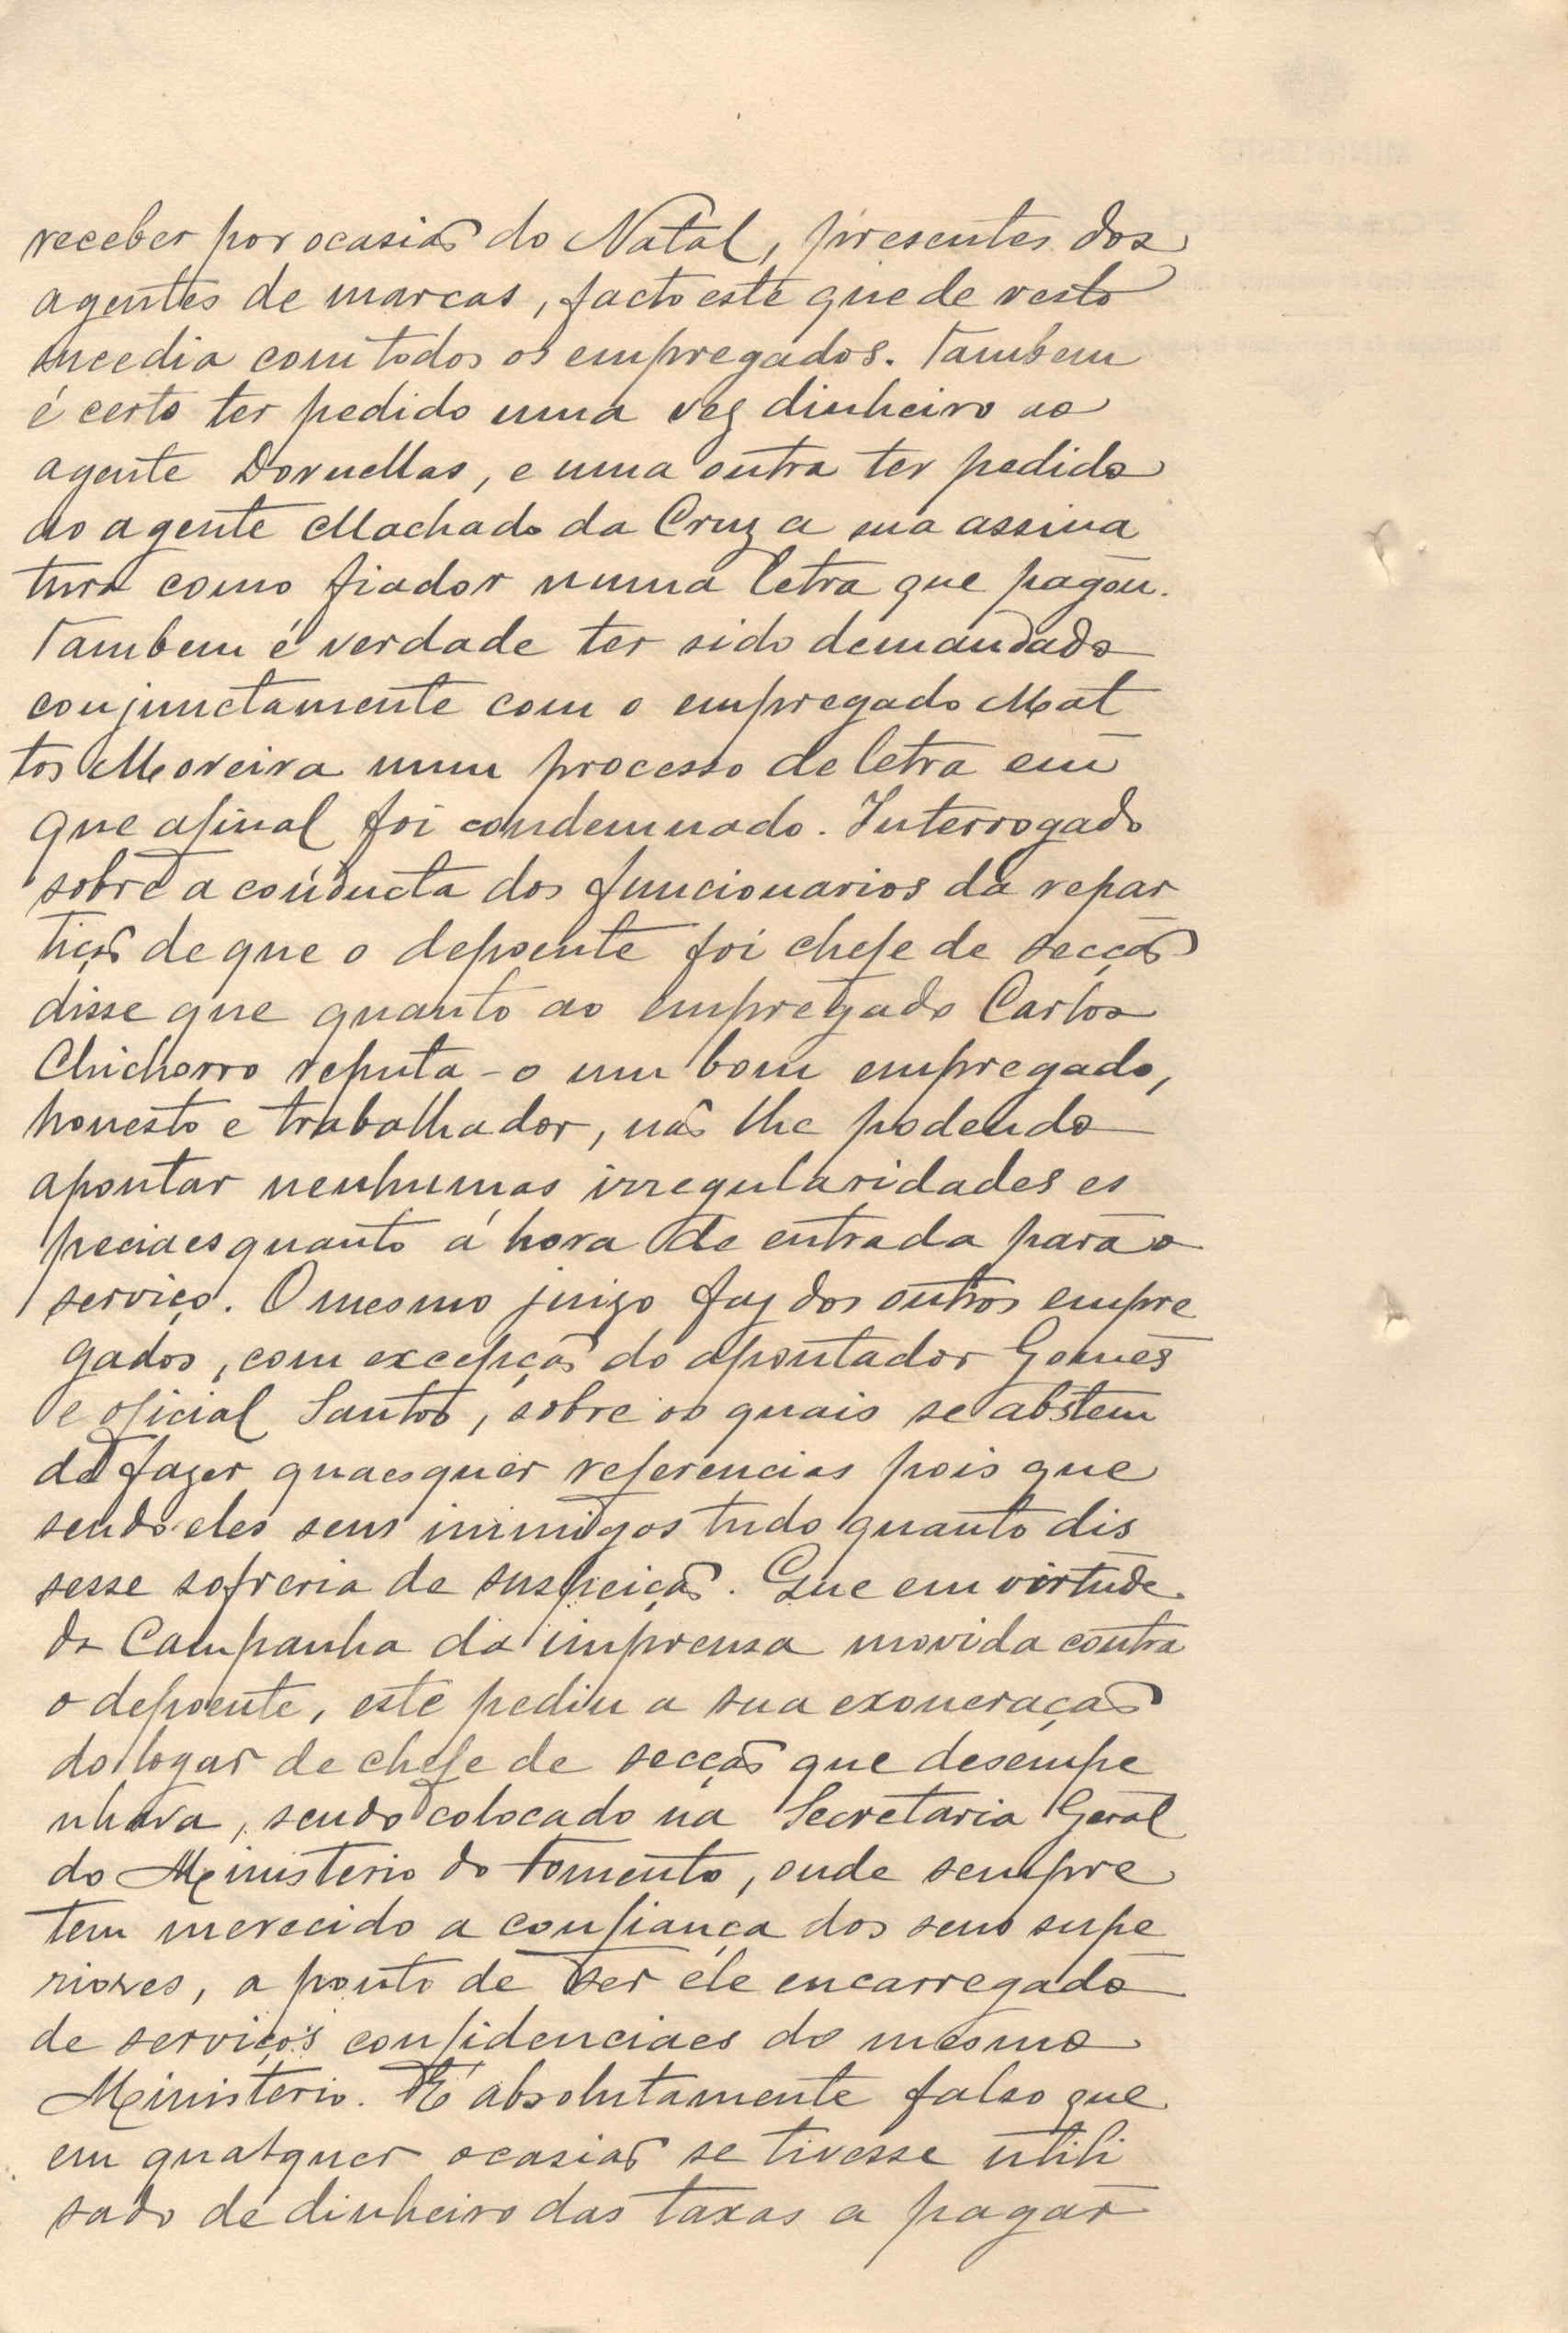 receber por ocasião do Natal, presentes dos
agentes de marcas, facto este que de resto
sucedia com todos os empregados. Tambem
é certo ter pedido uma vez dinheiro ao
agente Dornellas, e uma outra ter pedido
ao agente Machado da Cruz a sua assina
tura como fiador numa letra que pagou.
Tambem é verdade ter sido demandado
conjunctamente com o empregado Mat
tos Moreira num processo de letra em
que afinal foi condemnado. Interrogado
sobre a conducta dos funcionarios da repar
tição de que o depoente foi chefe de secção
disse que quanto ao empregado Carlos
Chichorro reputa-o um bom empregado,
honesto e trabalhador, não lhe podendo
apontar nenhumas irregularidades es
peciaes quanto á hora de entrada para o
serviço. O mesmo juizo faz dos outros empre
gados, com excepção do apontador Gomes
e oficial Santos, sobre os quais se abstem
de fazer quaesquer referencias pois que
sendo eles seus inimigos tudo quanto dis
sesse sofreria de suspeição. Que em virtude
da Campanha da imprensa movida contra
o depoente, este pediu a sua exoneração
do logar de chefe de secção que desempe
nhava, sendo colocado na Secretaria Geral
do Ministerio do Fomento, onde sempre
tem merecido a confiança dos seus supe
riores, a ponto de ser éle encarregado
de serviços confidenciaes do mesmo
Ministerio. É absolutamente falso que
em qualquer ocasião se tivesse utili
sado de dinheiro das taxas a pagar